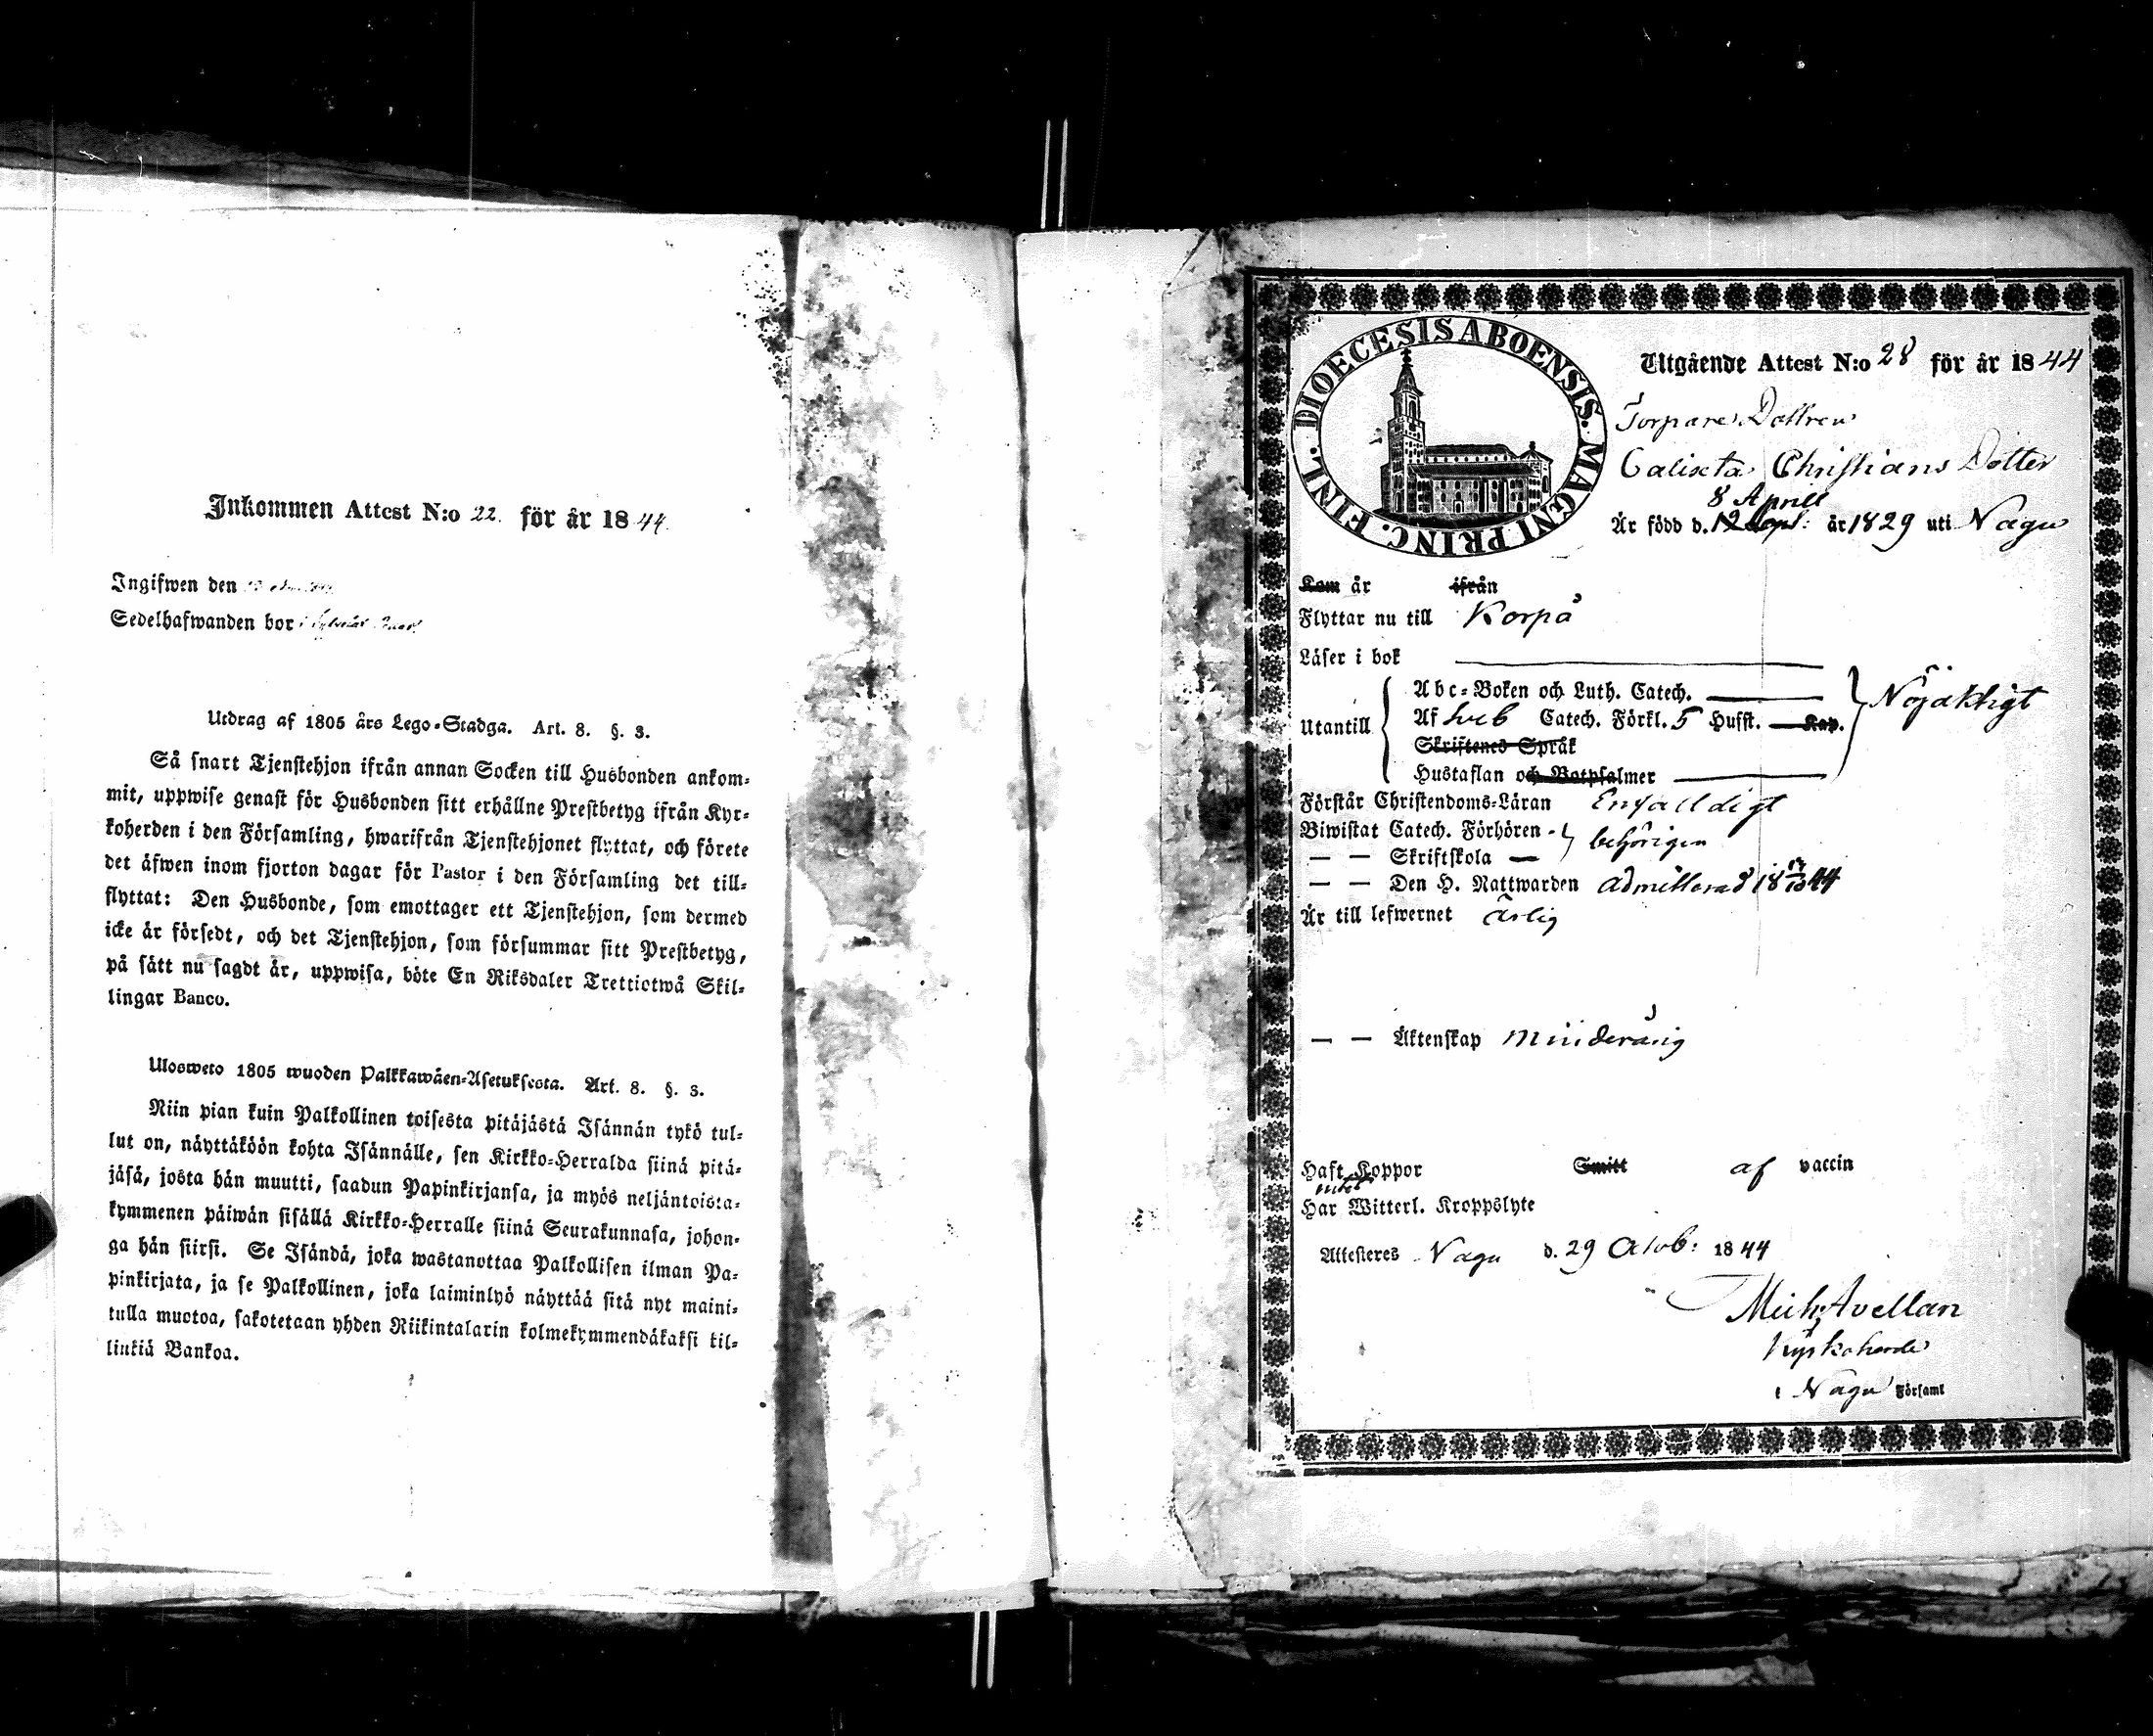 Inkommen Attest N:o 22. för år 1844.
Ingifwen den
Sedelhafwanden bor i
Utdrag af 1805 års Lego-Stadga. Art. 8. §. 3.
Så snart Tjenstehjon ifrån annan Socken till Husbonden ankom-
mit, uppwise genast för Husbonden sitt erhållne Prestbetyg ifrån Kyr-
koherden i den Församling, hwarifrån Tjenstehjonet flyttat, och förete
det äfwen inom fjorton dagar för Pastor i den Församling det till-
flyttat: Den Husbonde, som emottager ett Tjenstehjon, som dermed
icke är försedt, och det Tjenstehjon, som försummar sitt Prestbetyg,
på sätt nu sagdt är, uppwisa, böte En Riksdaler Trettiotwå Skil-
lingar Banco.
Ulosweto 1805 wuoden Palkkawäen-Asetuksesta. Art. 8. §. 3.
Niin pian kuin Palkollinen toisesta pitäjästä Isännän tykö tul-
lut on, näyttäköön kohta Isännälle, sen Kirkko-Herralda siinä pitä-
jäsä, josta hän muutti, saadun Papinkirjansa, ja myös neljäntoista-
kymmenen päiwän sisällä Kirkko-Herralle siinä Seurakunnasa, johon-
ga hän siirsi. Se Isändä, joka wastanottaa Palkollisen ilman Pa-
pinkirjata, ja se Palkollinen, joka laiminlyö näyttää sitä nyt maini-
tulla muotoa, sakotetaan yhden Riikintalarin kolmekymmendäkaksi kil-
linkiä Bankoa.
DIOECESIS ABOENSIS. MAGNI PRINC. FINL.
Utgående Attest N:o 28 för år 1844
Torpare Dottren
Calixta Christians Dotter
8 Aprill
Är född d. 12 Sept: år 1829 uti Nagu
Kom år ifrån
Flyttar nu till Korpå
Läser i bok
Abc-Boken och Luth. Catech.
Utantill Af Sveb Catech. Förkl. 5 Husst. Kap. Nöjaktigt
Skriftenes Språk
Hustaflan och Botpsalmer
Förstår Christendoms-Läran Enfalldigt
Biwistat Catech. Förhören behörigen
— — Skriftskola —
— — Den H. Nattwarden admitterad 18 13/10 44
Är till lefwernet ärlig
— — Äktenskap minderårig
Haft Koppor Smitt af vaccin
intet
Har Witterl. Kroppslyte
Attesteres Nagu d. 29 Octob: 1844
Mich Avellan
Kyrkoherde
i Nagu Församl